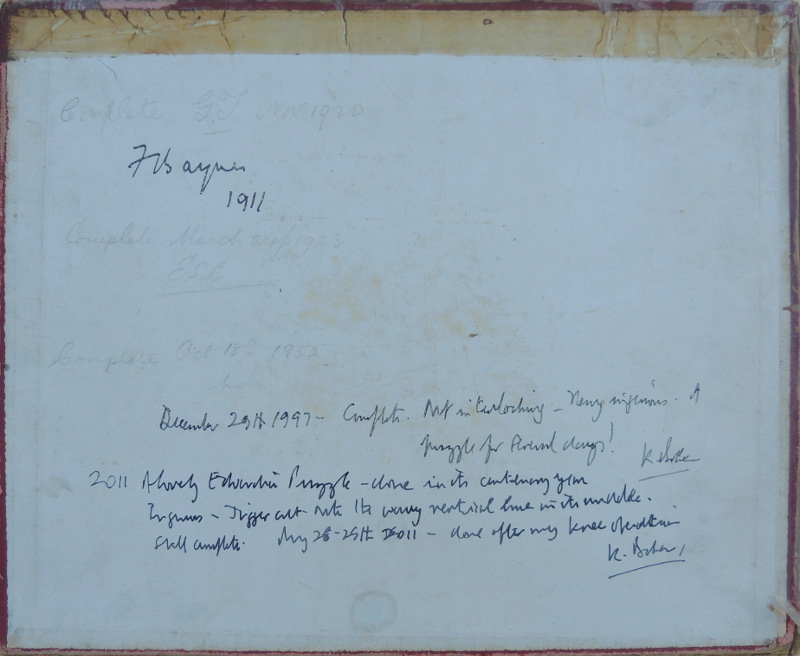 Complete G.T. Nov 1920
1911
Complete March 1923
Complete Oct 18th 1953
December 29th 1997 - Complete. Not interlocking - Very ingenious. A
puzzle for several days!
2011 A lovely Edwardian Puzzle - done in its centenary year
cut - note the wavy vertical line in its middle.
Still complete. 28-29th 2011 - done after my knee operation
K.